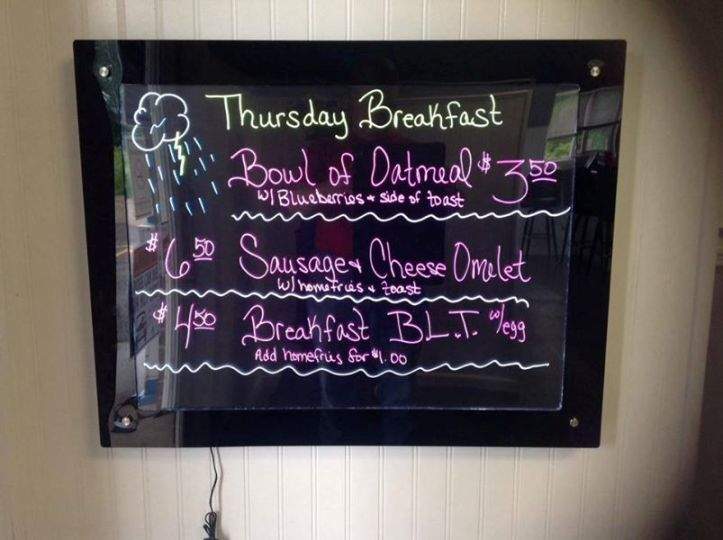 Thursday Breakfast
Bowl of Oatmeal $3.50
w/ Blueberries + side of toast
$6.50 Sausage + Cheese Omelet
w/ homefries + toast
$4.50 Breakfast B.L.T. w/egg
Add homefries for $1.00